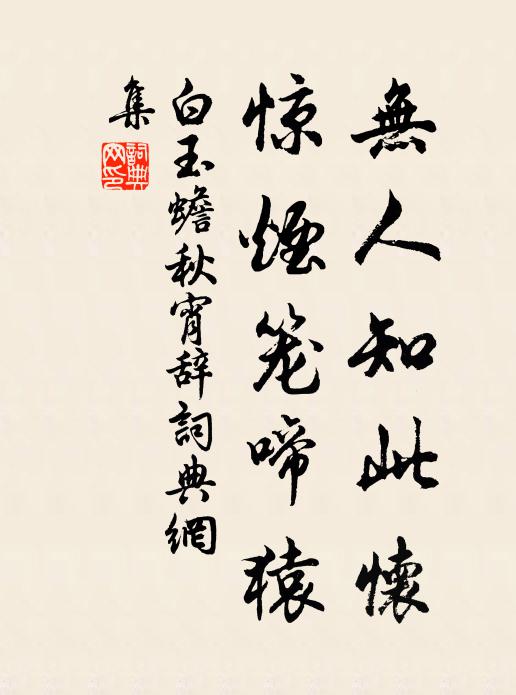 無人知此懷
惊煙笼啼猿
白玉蟾秋宵辞詞典網
集
詞典網印